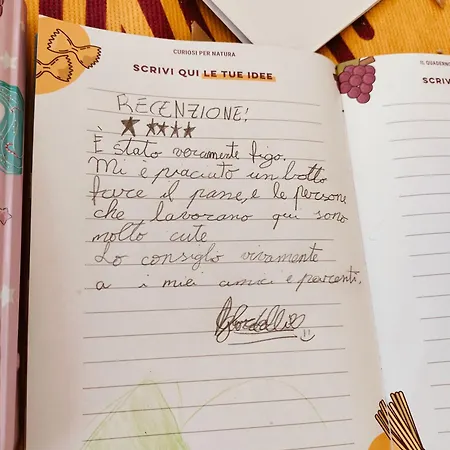 CURIOSI PER NATURA
SCRIVI QUI LE TUE IDEE
RECENZIONE!
È stato veramente figo.
Mi è piaciuto un botto
fare il pane, e le persone
che lavorano qui sono
molto cute
Lo consiglo vivamente
a i miei amici e parenti.
IL QUADERN
SCRIV